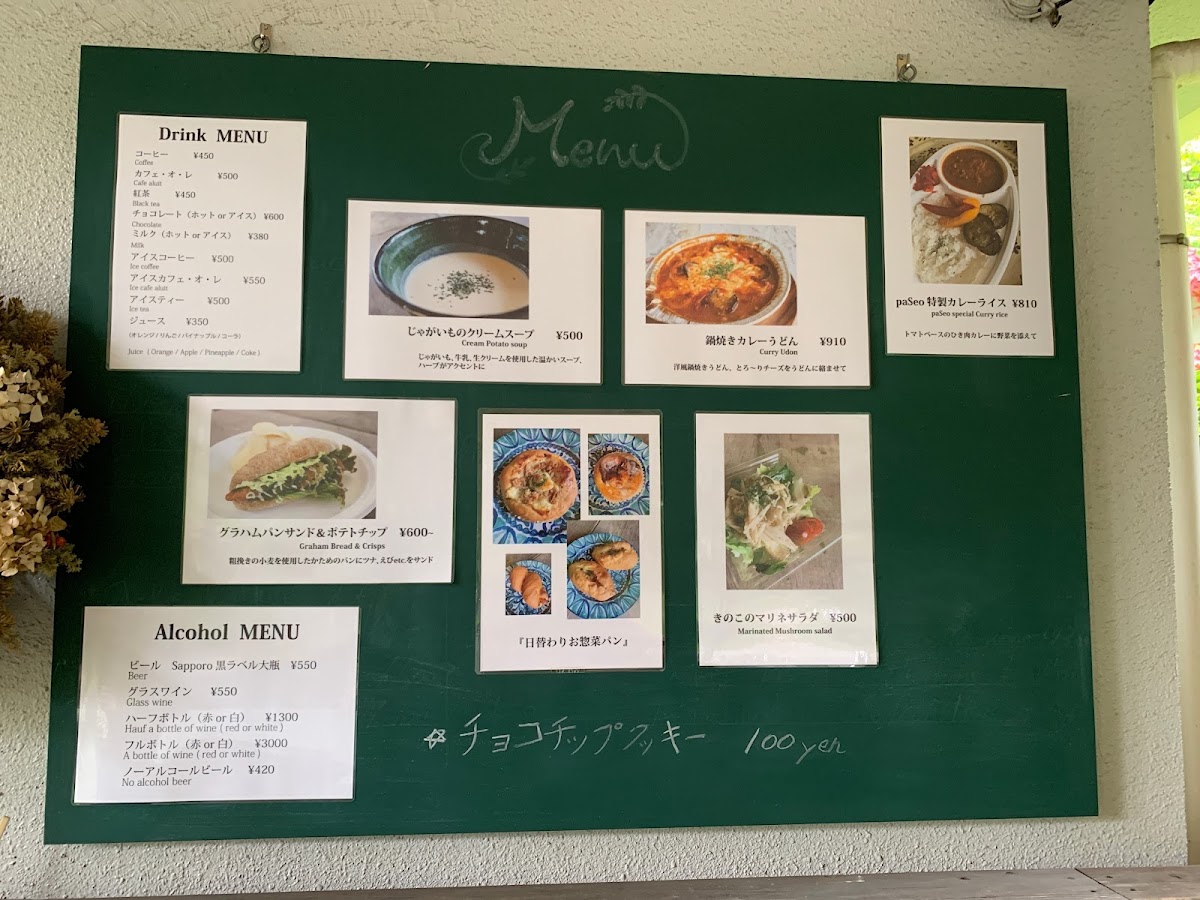 Menu
Drink MENU
コーヒー ¥450
Coffee
カフェ・オ・レ ¥500
Cafe aluit
紅茶 ¥450
Black tea
チョコレート（ホット or アイス） ¥600
Chocolate
ミルク（ホット or アイス） ¥380
Milk
アイスコーヒー ¥500
Ice coffee
アイスカフェ・オ・レ ¥550
Ice cafe aluit
アイスティー ¥500
Ice tea
ジュース ¥350
(オレンジ / りんご / パイナップル / コーラ)
Juice ( Orange / Apple / Pineapple / Coke )
じゃがいものクリームスープ ¥500
Cream Potato soup
じゃがいも、牛乳、生クリームを使用した温かいスープ、
ハーブがアクセントに
鍋焼きカレーうどん ¥910
Curry Udon
洋風鍋焼きうどん、とろ〜りチーズをうどんに絡ませて
paSeo 特製カレーライス ¥810
paSeo special Curry rice
トマトベースのひき肉カレーに野菜を添えて
グラハムパンサンド＆ポテトチップ ¥600~
Graham Bread & Crisps
粗挽きの小麦を使用したかためのパンにツナ、えびetc.をサンド
『日替わりお惣菜パン』
きのこのマリネサラダ ¥500
Marinated Mushroom salad
Alcohol MENU
ビール Sapporo 黒ラベル大瓶 ¥550
Beer
グラスワイン ¥550
Glass wine
ハーフボトル（赤 or 白） ¥1300
Hauf a bottle of wine ( red or white )
フルボトル（赤 or 白） ¥3000
A bottle of wine ( red or white )
ノーアルコールビール ¥420
No alcohol beer
☆チョコチップクッキー 100yen